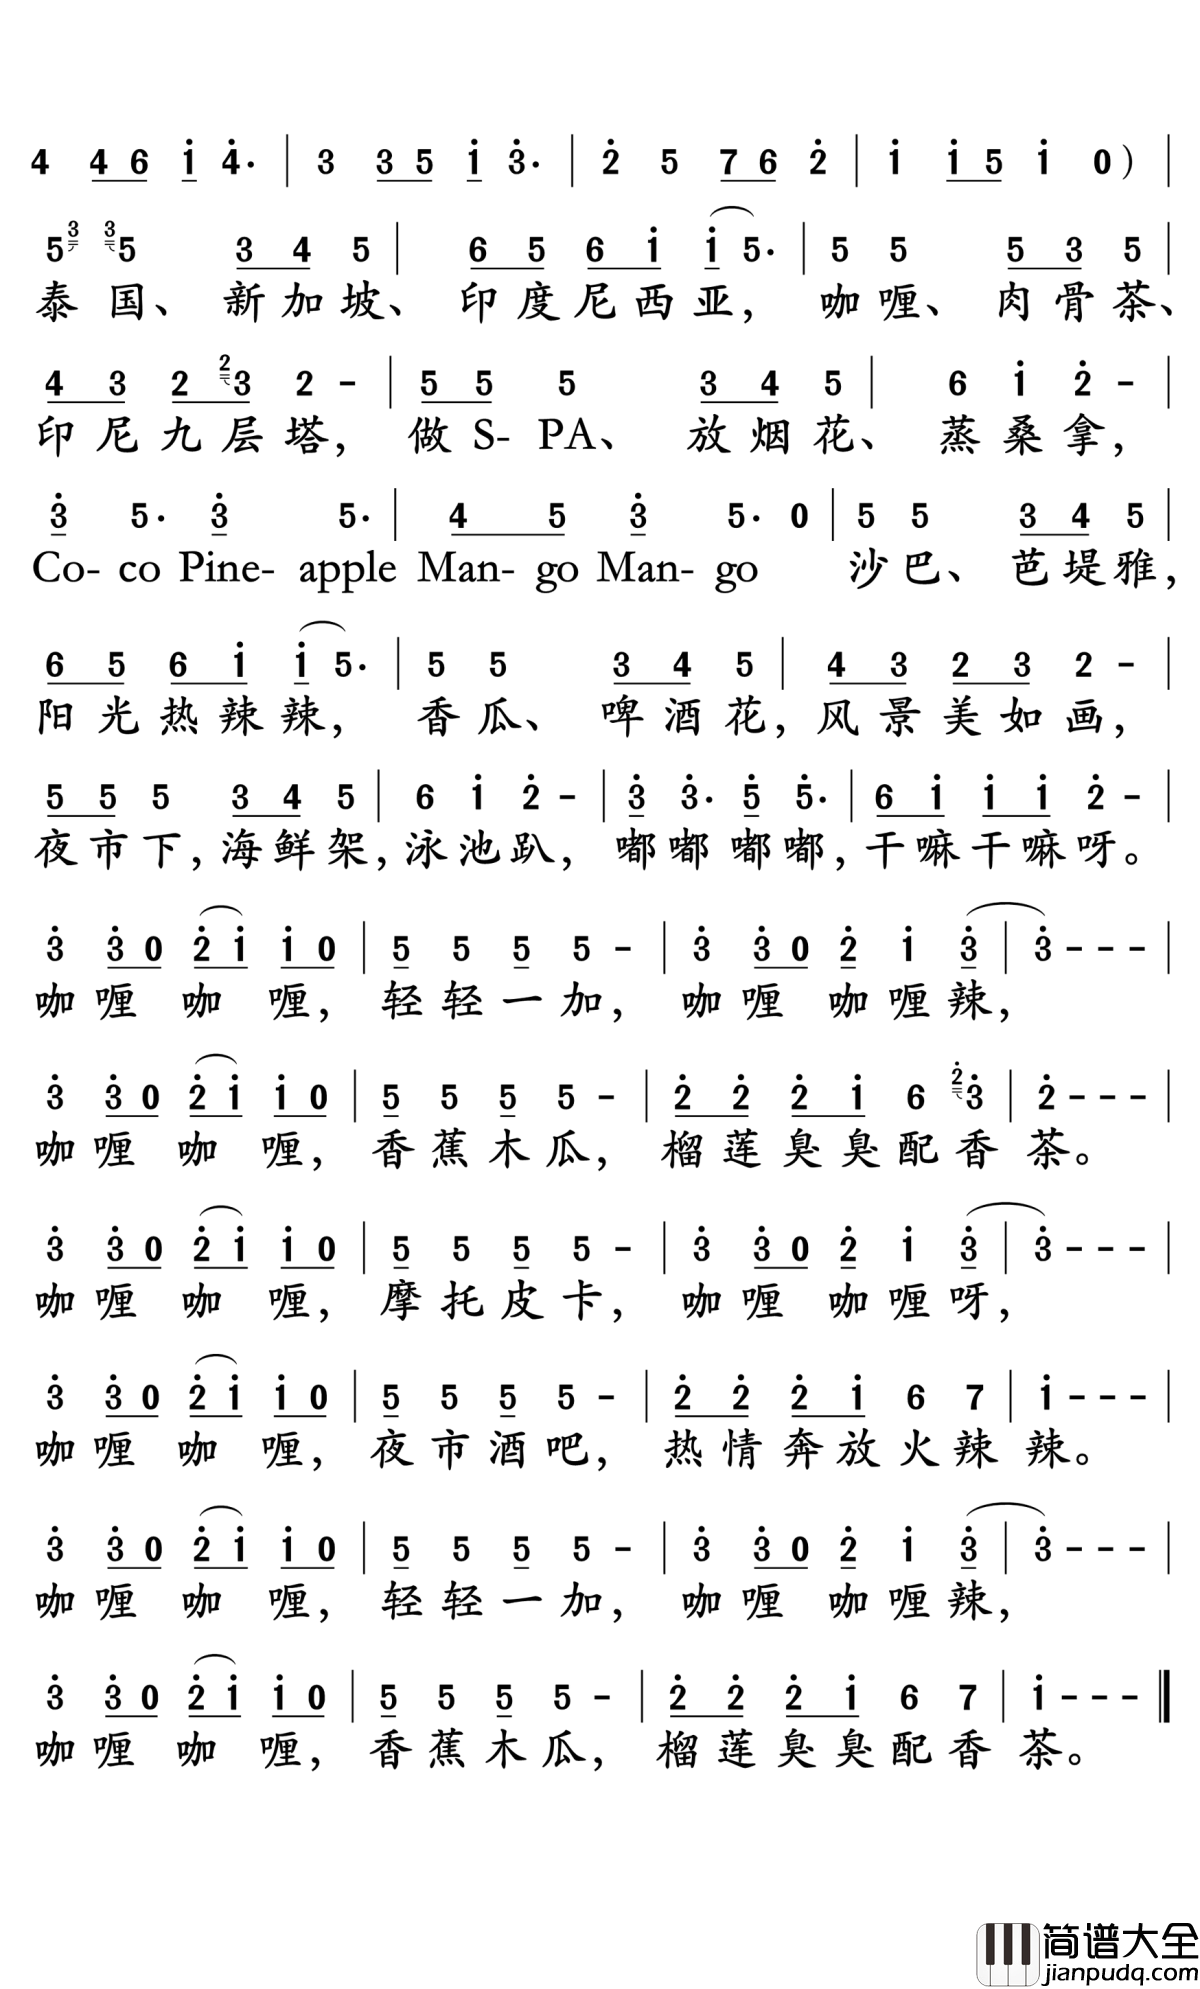 4 4 6 i 4. | 3 3 5 i 3. | 2 5 7 6 2 | i i 5 i 0 ) |
5 3 3 5 3 4 5 | 6 5 6 i i 5. | 5 5 5 3 5 |
泰 国、 新 加 坡、 印 度 尼 西 亚, 咖 喱、 肉 骨 茶、
4 3 2 2 3 2 - | 5 5 5 3 4 5 | 6 i 2 - |
印 尼 九 层 塔, 做 S- PA、 放 烟 花、 蒸 桑 拿,
3 5. 3 5. | 4 5 3 5. 0 | 5 5 3 4 5 |
Co- co Pine- apple Man- go Man- go 沙 巴、 芭 堤 雅,
6 5 6 i i 5. | 5 5 3 4 5 | 4 3 2 3 2 - |
阳 光 热 辣 辣, 香 瓜、 啤 酒 花, 风 景 美 如 画,
5 5 5 3 4 5 | 6 i 2 - | 3 3. 5 5. | 6 i i i 2 - |
夜 市 下, 海 鲜 架, 泳 池 趴, 嘟 嘟 嘟 嘟, 干 嘛 干 嘛 呀。
3 3 0 2 i i 0 | 5 5 5 5 - | 3 3 0 2 i 3 | 3 - - - |
咖 喱 咖 喱, 轻 轻 一 加, 咖 喱 咖 喱 辣,
3 3 0 2 i i 0 | 5 5 5 5 - | 2 2 2 i 6 2 3 | 2 - - - |
咖 喱 咖 喱, 香 蕉 木 瓜, 榴 莲 臭 臭 配 香 茶。
3 3 0 2 i i 0 | 5 5 5 5 - | 3 3 0 2 i 3 | 3 - - - |
咖 喱 咖 喱, 摩 托 皮 卡, 咖 喱 咖 喱 呀,
3 3 0 2 i i 0 | 5 5 5 5 - | 2 2 2 i 6 7 | i - - - |
咖 喱 咖 喱, 夜 市 酒 吧, 热 情 奔 放 火 辣 辣。
3 3 0 2 i i 0 | 5 5 5 5 - | 3 3 0 2 i 3 | 3 - - - |
咖 喱 咖 喱, 轻 轻 一 加, 咖 喱 咖 喱 辣,
3 3 0 2 i i 0 | 5 5 5 5 - | 2 2 2 i 6 7 | i - - - ||
咖 喱 咖 喱, 香 蕉 木 瓜, 榴 莲 臭 臭 配 香 茶。
简谱大全
jianpudq.com